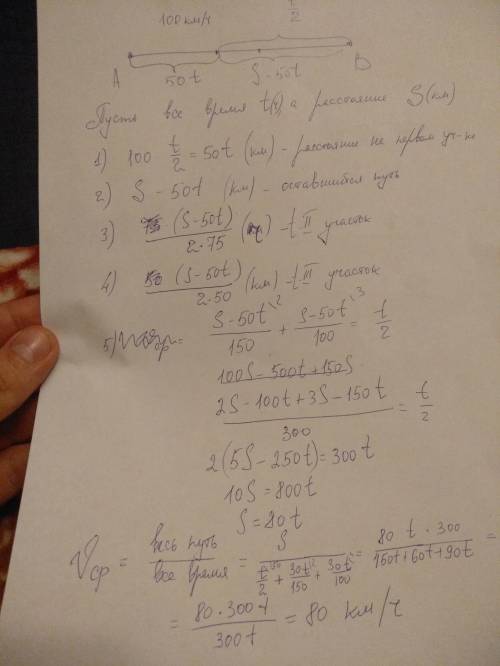 100км/ч t/2
A 50t S-50t B
Пусть все время t(ч), а расстояние S(км)
1) 100 t/2 = 50t (км) - расстояние на первом уч-ке
2) S - 50t (км) - оставшийся путь
3) (S-50t)/2·75 (ч) - t II участок
4) (S-50t)/2·50 (км) - t III участок
5) (S-50t)/150 + (S-50t)/100 = t/2
100S - 500t + 150S
(2S - 100t + 3S - 150t)/300 = t/2
2(5S - 250t) = 300t
10S = 800t
S = 80t
Vср = весь путь/все время = S/(t/2 + 30t/150 + 30t/100) = 80t·300/(150t+60t+90t) =
= 80·300t/300t = 80 км/ч